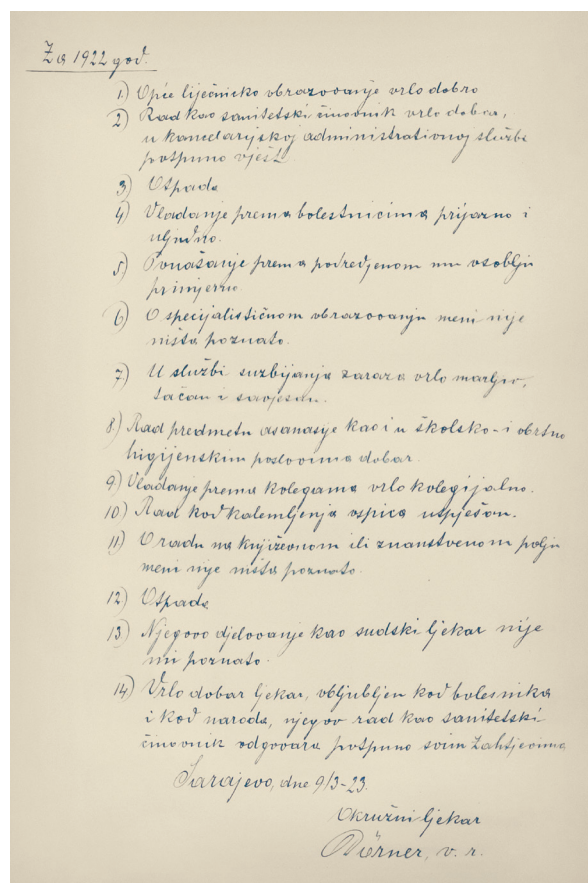 Za 1922 god.
1) Opće liječničko obrazovanje vrlo dobro
2) Rad kao sanitetski činovnik vrlo dobar,
u kancelarijskoj administrativnoj službi
potpuno vješt.
3) Otpada
4) Vladanje prema bolestnicima prijazno i
uljudno.
5) Ponašanje prema podredjenom mu osoblju
primjerno.
6) O specijalističnom obrazovanju meni nije
ništa poznato.
7) U službi suzbijanja zaraza vrlo marljiv,
tačan i savjesan.
8.) Rad predmetu asanasije kao i u školsko- i obrtno
higijenskim poslovima dobar.
9) Vladanje prema kolegama vrlo kolegijalno.
10) Rad kod kalemljenja ospica uspješan.
11) O radu na književnom ili znanstvenom polju
meni nije ništa poznato.
12) Otpada
13) Njegovo djelovanje kao sudski ljekar nije
mi poznato.
14) Vrlo dobar ljekar, obljubljen kod bolesnika
i kod naroda, njegov rad kao sanitetski
činovnik odgovara potpuno svim zahtjevima
Sarajevo, dne 9/3-23.
Okružni ljekar
Dörner, v. r.